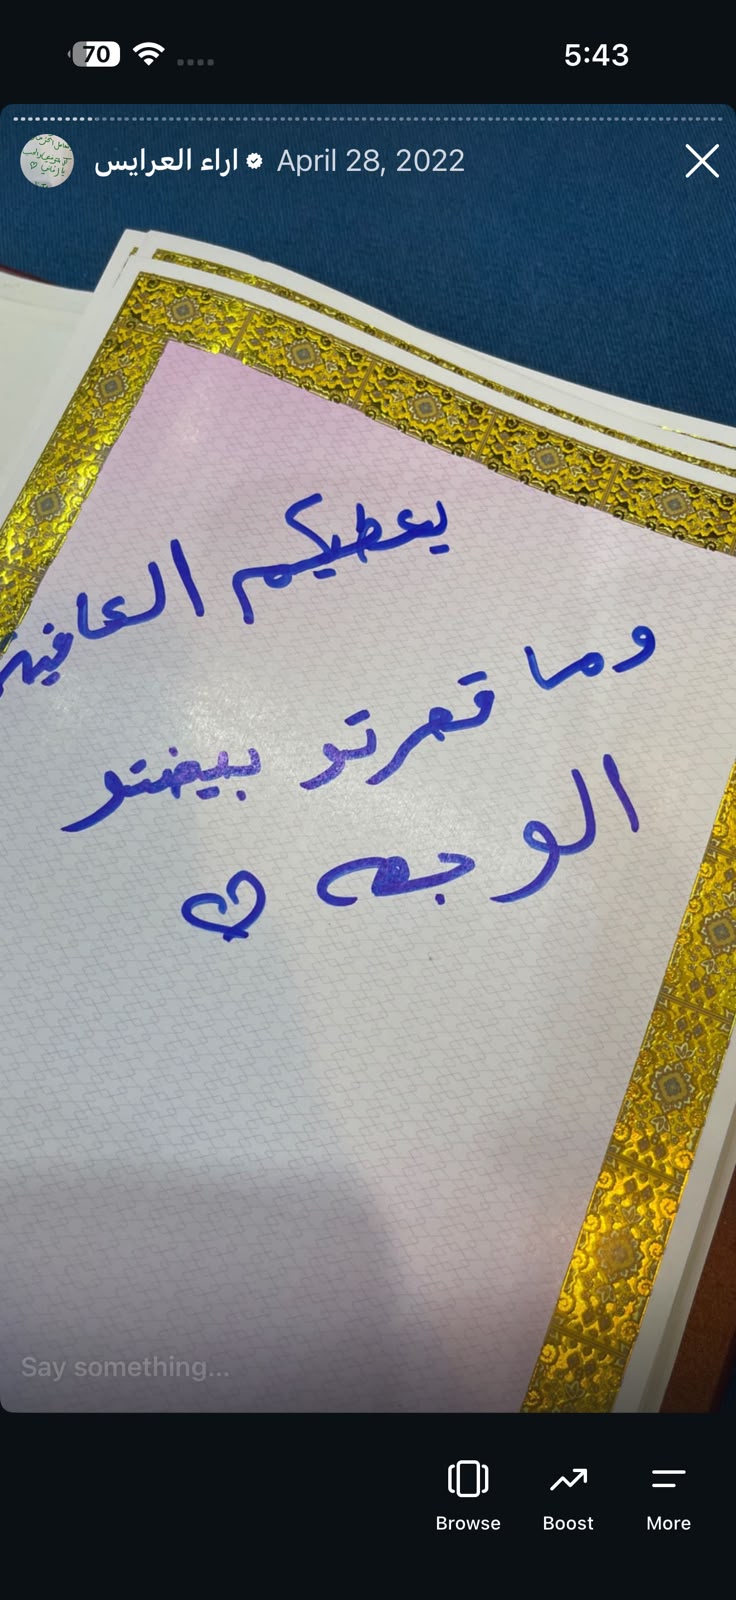 70
5:43
اراء العرايس April 28, 2022
يعطيكم العافية
وما قصرتو بيضتو
الوجه ♡
Say something...
Browse Boost More